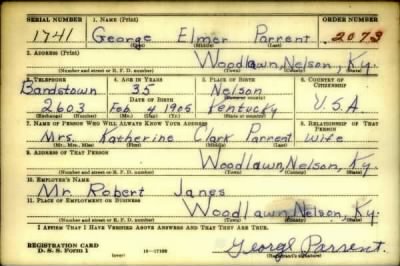 SERIAL NUMBER 1. NAME (Print) ORDER NUMBER
1741 George Elmer Parrent 2073
(First) (Middle) (Last)
2. ADDRESS (Print)
Woodlawn, Nelson, Ky.
(Number and street or R. F. D. number) (Town) (County) (State)
3. TELEPHONE 4. AGE IN YEARS 5. PLACE OF BIRTH 6. COUNTRY OF CITIZENSHIP
Bardstown 35 Nelson
DATE OF BIRTH (Town or county)
2603 Feb 4 1905 Kentucky U.S.A.
(Exchange) (Number) (Mo.) (Day) (Yr.) (State or country)
7. NAME OF PERSON WHO WILL ALWAYS KNOW YOUR ADDRESS 8. RELATIONSHIP OF THAT PERSON
Mrs. Katherine Clark Parrent wife
(Mr., Mrs., Miss) (First) (Middle) (Last)
9. ADDRESS OF THAT PERSON
Woodlawn, Nelson, Ky.
(Number and street or R. F. D. number) (Town) (County) (State)
10. EMPLOYER'S NAME
Mr. Robert Janes
11. PLACE OF EMPLOYMENT OR BUSINESS
Woodlawn, Nelson, Ky.
(Number and street or R. F. D. number) (Town) (County) (State)
I AFFIRM THAT I HAVE VERIFIED ABOVE ANSWERS AND THAT THEY ARE TRUE.
REGISTRATION CARD
D. S. S. Form 1 (over) George Parrent
(Registrant's signature)